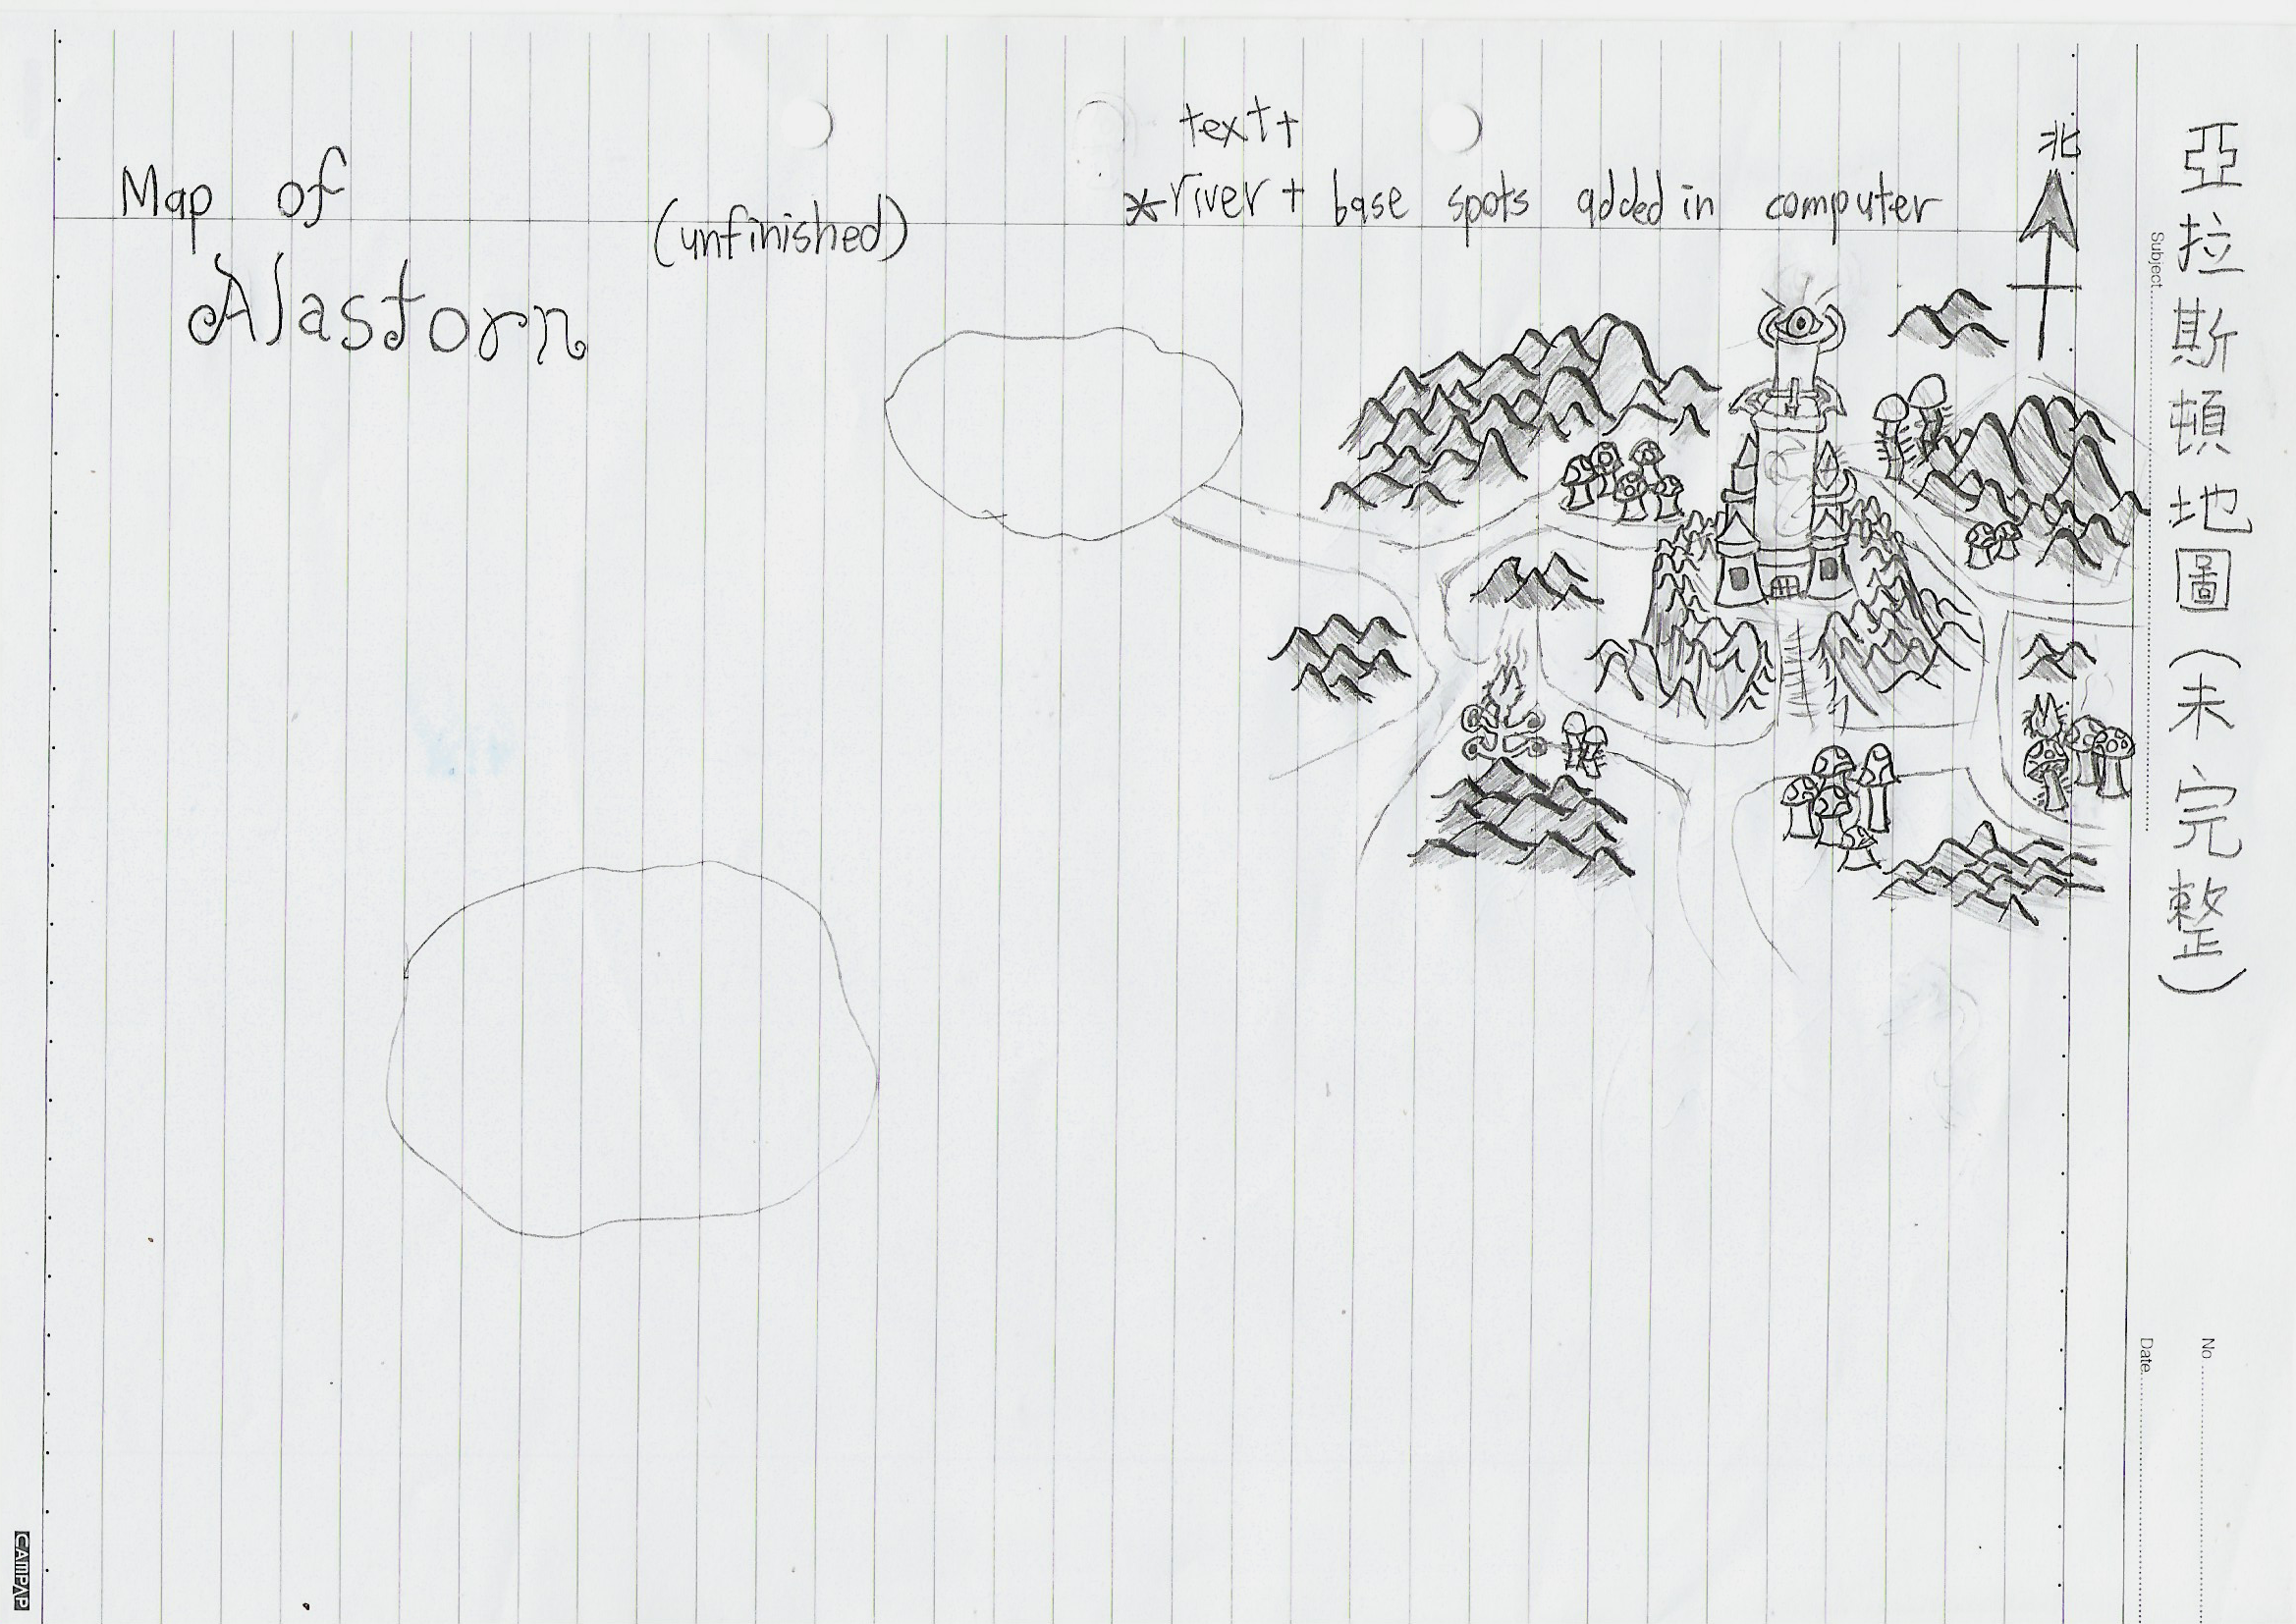 Map of
Alastorn
(unfinished)
text+
*river + base spots added in computer
北
亞拉斯頓地圖(未完整)
Subject
No
Date
CAMPAP